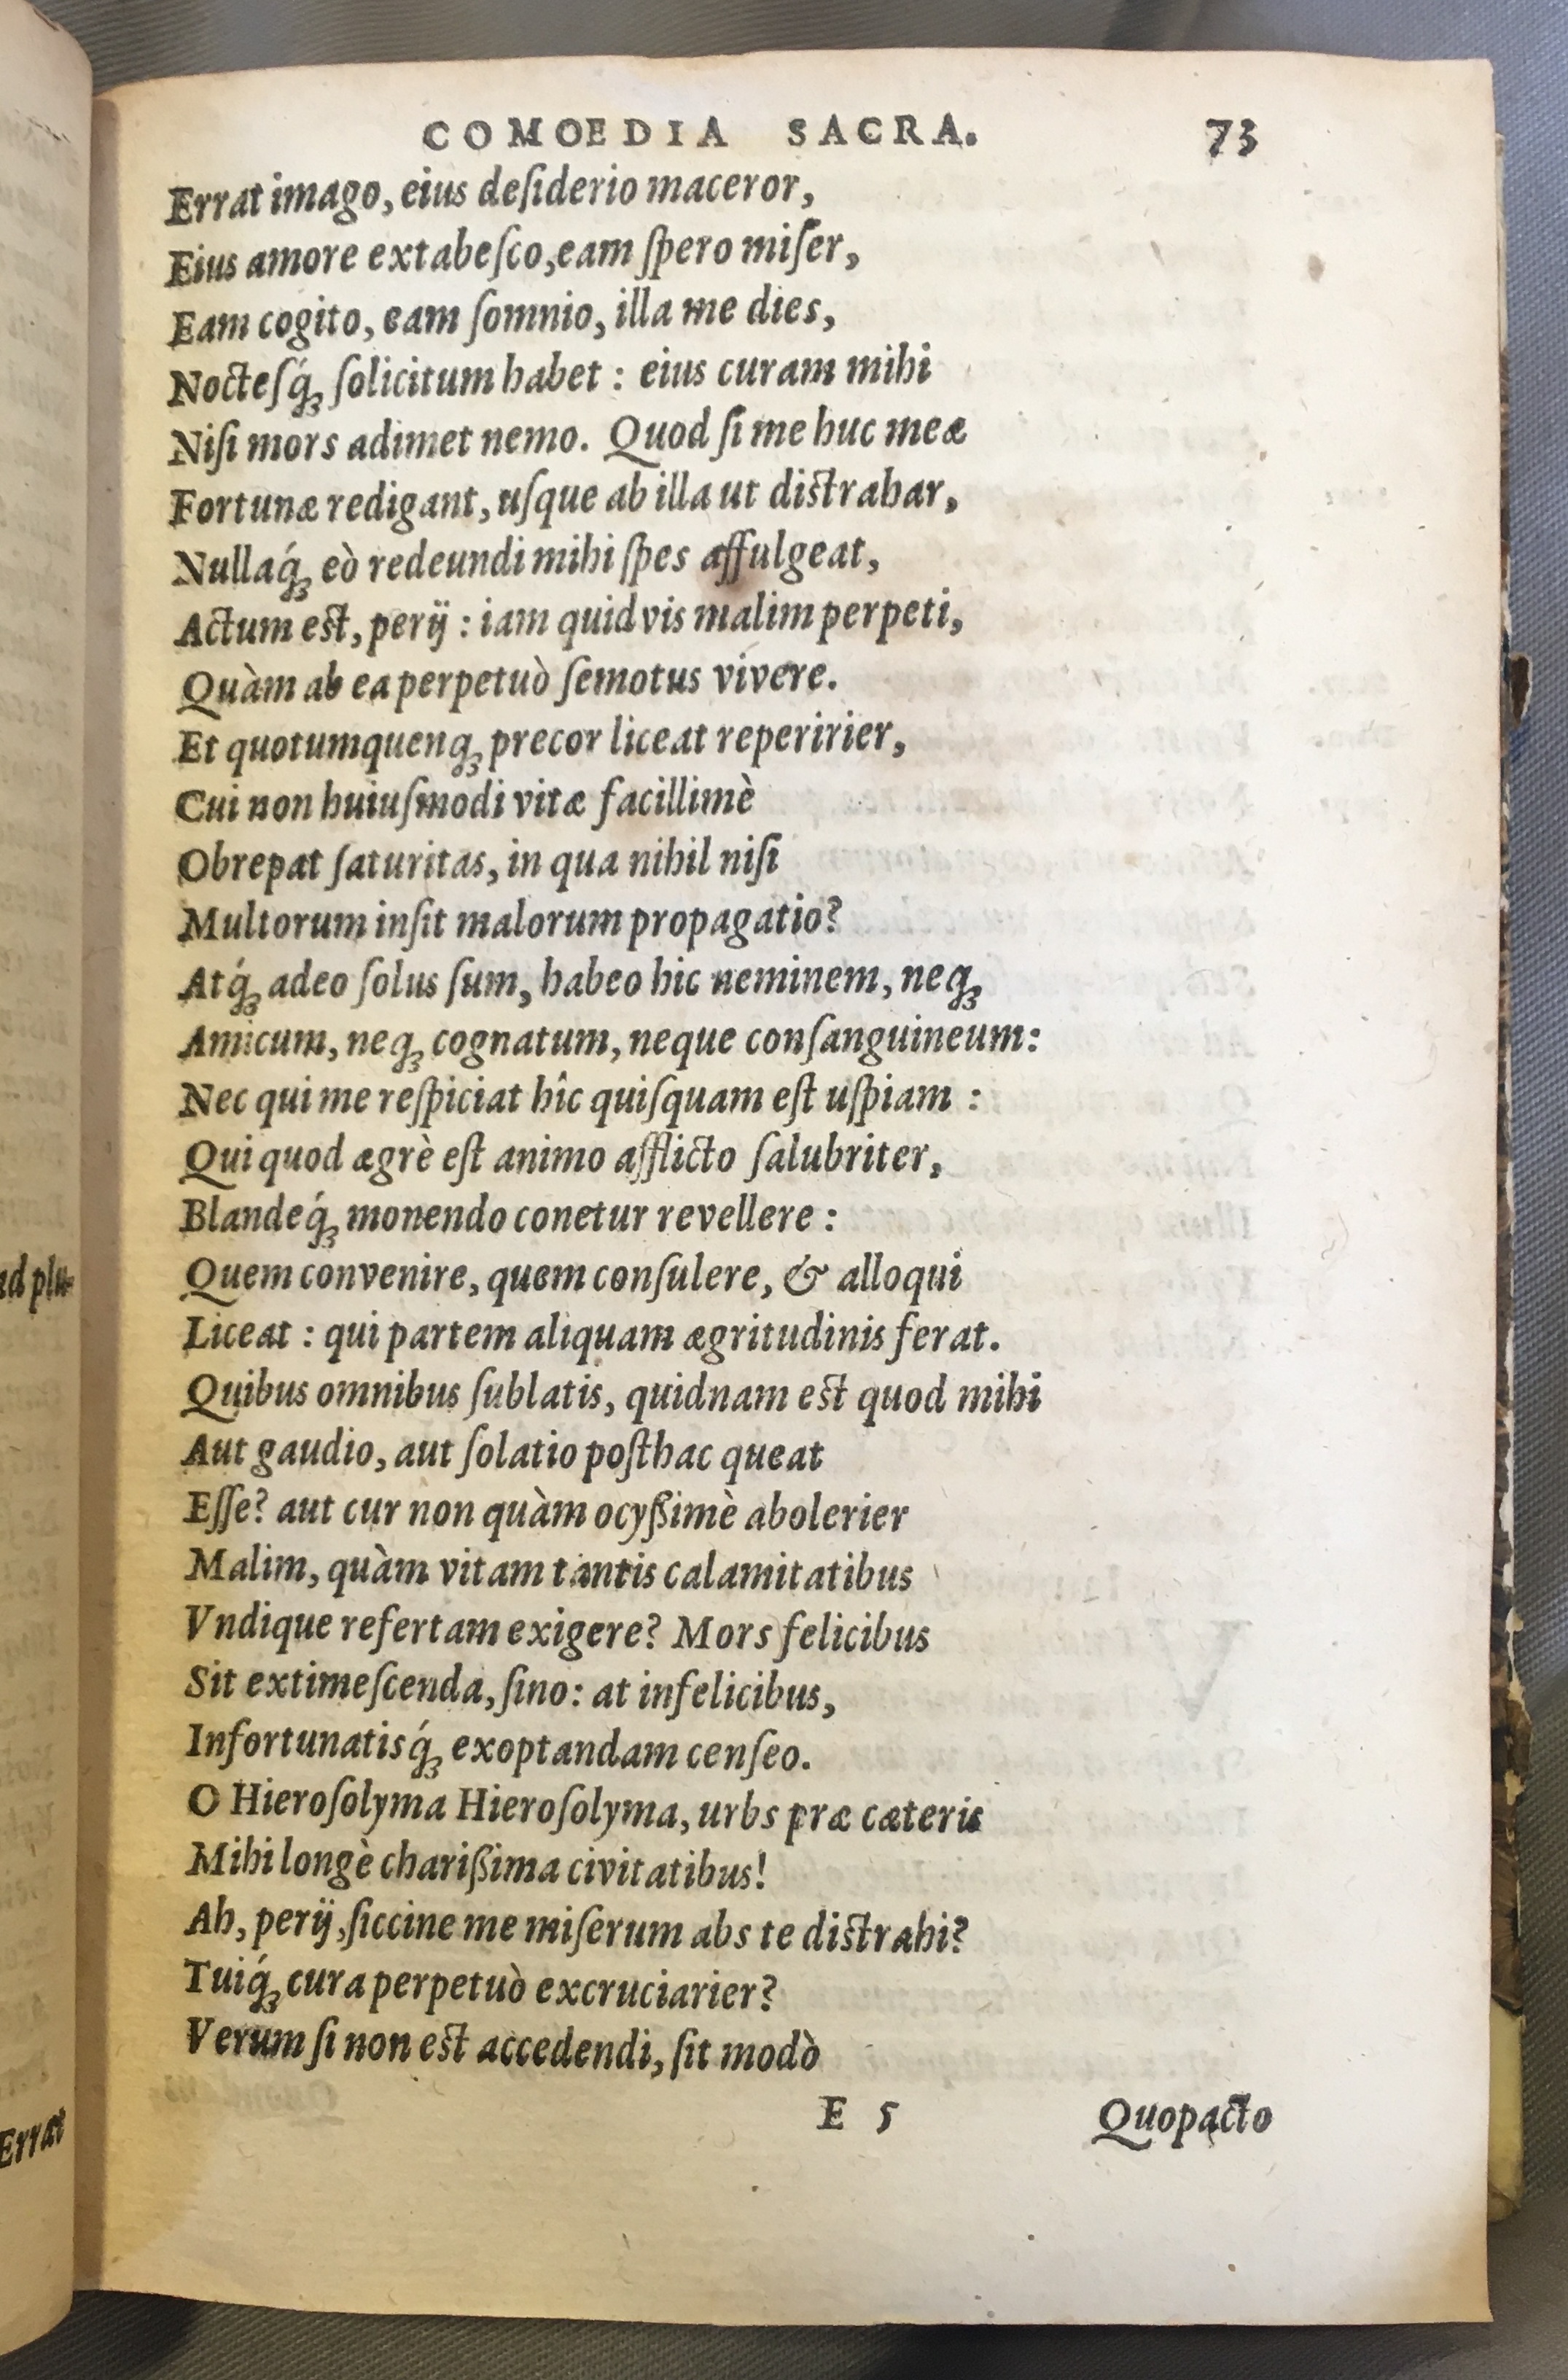 COMOEDIA SACRA. 73
Errat imago, eius deſiderio maceror,
Eius amore extabeſco, eam ſpero miſer,
Eam cogito, eam ſomnio, illa me dies,
Nocteſq́ꝫ ſolicitum habet : eius curam mihi
Niſi mors adimet nemo. Quod ſi me huc meæ
Fortunæ redigant, uſque ab illa ut distrahar,
Nullaq́ꝫ eò redeundi mihi ſpes affulgeat,
Actum est, perij : iam quidvis malim perpeti,
Quàm ab ea perpetuò ſemotus vivere.
Et quotumquenqꝫ precor liceat reperirier,
Cui non huiuſmodi vitæ facillimè
Obrepat ſaturitas, in qua nihil niſi
Multorum inſit malorum propagatio?
Atq́ꝫ adeo ſolus ſum, habeo hic neminem, neqꝫ
Amicum, neqꝫ cognatum, neque conſanguineum:
Nec qui me reſpiciat hîc quiſquam eſt uſpiam :
Qui quod ægrè eſt animo afflicto ſalubriter,
Blandeq́ꝫ monendo conetur revellere :
Quem convenire, quem conſulere, & alloqui
Liceat : qui partem aliquam ægritudinis ferat.
Quibus omnibus ſublatis, quidnam est quod mihi
Aut gaudio, aut ſolatio poſthac queat
Eſſe? aut cur non quàm ocyßimè abolerier
Malim, quàm vitam tantis calamitatibus
Vndique refertam exigere? Mors felicibus
Sit extimeſcenda, ſino: at infelicibus,
Infortunatisq́ꝫ exoptandam cenſeo.
O Hieroſolyma Hieroſolyma, urbs præ cæteris
Mihi longè charißima civitatibus!
Ah, perij, ſiccine me miſerum abs te distrahi?
Tuiq́ꝫ cura perpetuò excruciarier?
Verum ſi non est accedendi, ſit modò
E 5 Quopacto
ad plu-
Errat